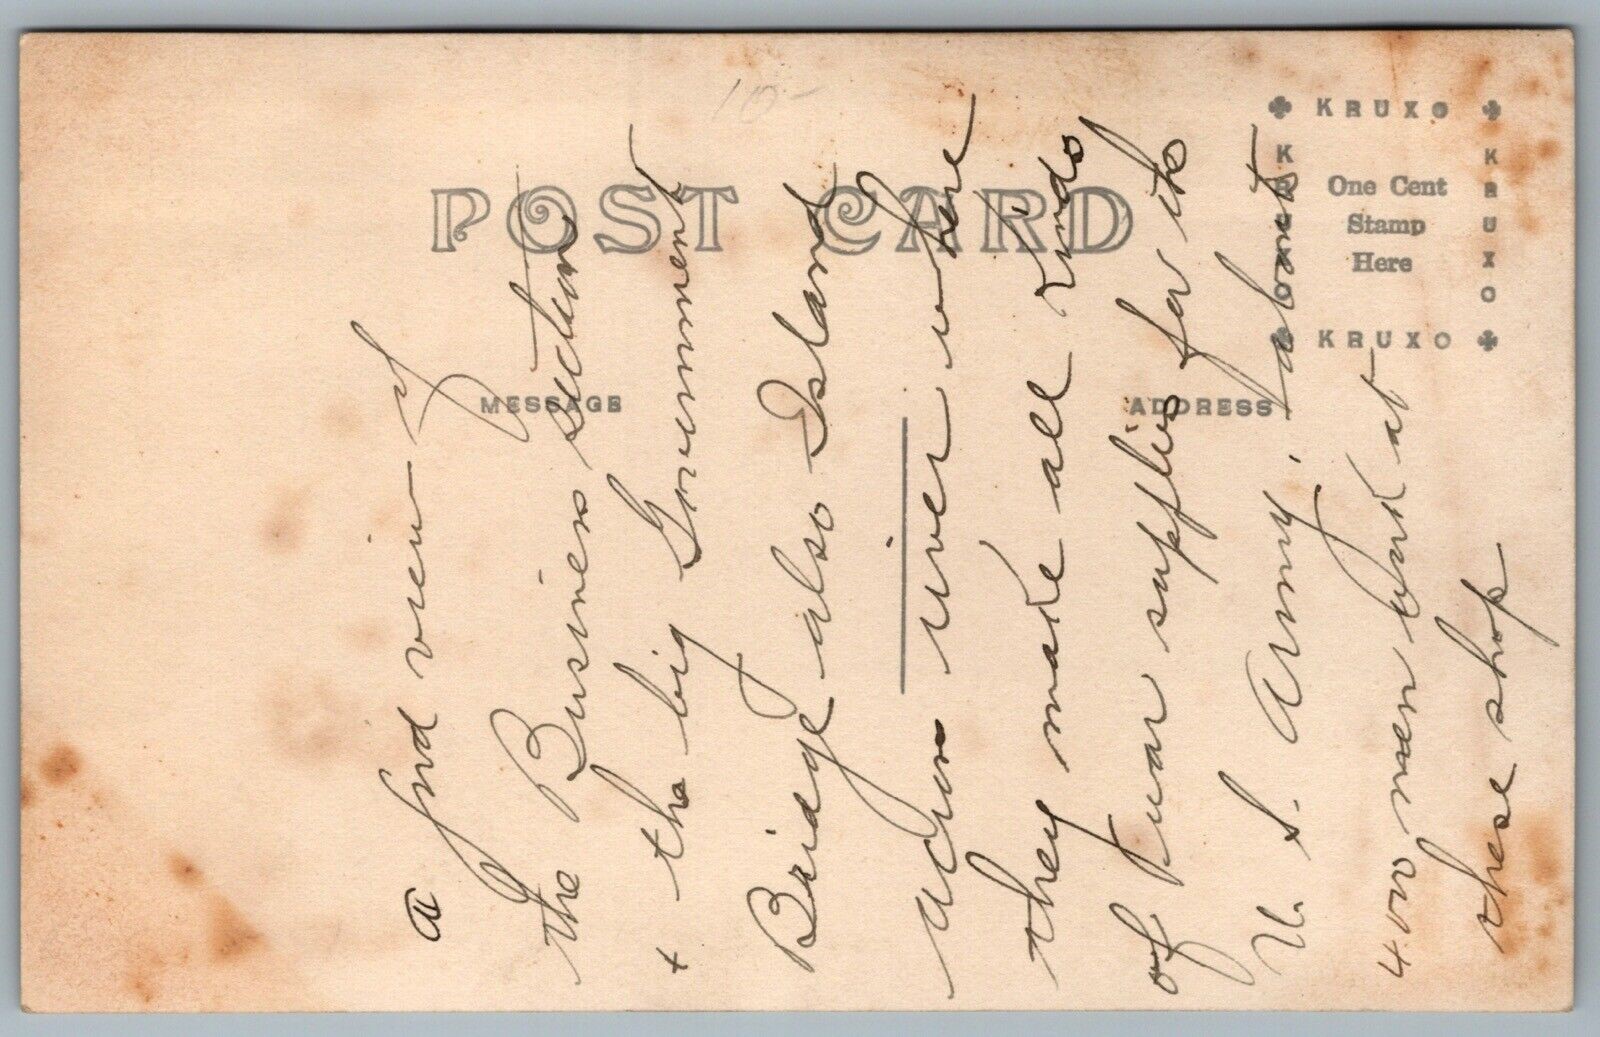 10-
POST CARD
MESSAGE
ADDRESS
KRUXO
KRUXO
KRUXO
KRUXO
One Cent
Stamp
Here
a good view of
the Business section
+ the big Government
Bridge also Island
across river where
they make all kinds
of war supplies for the
U. S. Army. about
4000 men work at
these shop